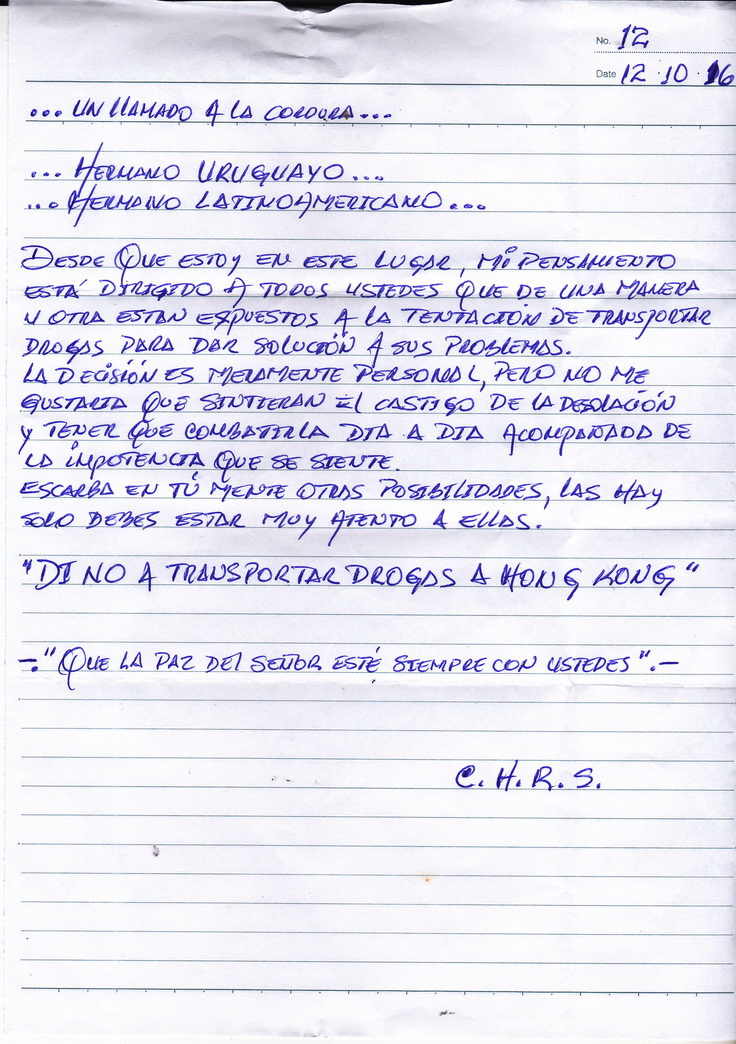 No. 12
Date 12 · 10 · 16
... UN LLAMADO A LA CORDURA...
... HERMANO URUGUAYO...
... HERMANO LATINOAMERICANO...
DESDE QUE ESTOY EN ESTE LUGAR, MI PENSAMIENTO
ESTÁ DIRIGIDO A TODOS USTEDES QUE DE UNA MANERA
U OTRA ESTAN EXPUESTOS A LA TENTACIÓN DE TRANSPORTAR
DROGAS PARA DAR SOLUCIÓN A SUS PROBLEMAS.
LA DECISIÓN ES MERAMENTE PERSONAL, PERO NO ME
GUSTARIA QUE SINTIERAN EL CASTIGO DE LA DESOLACIÓN
Y TENER QUE COMBATIRLA DIA A DIA ACOMPAÑADA DE
LA IMPOTENCIA QUE SE SIENTE.
ESCARBA EN TÚ MENTE OTRAS POSIBILIDADES, LAS HAY
SOLO DEBES ESTAR MUY ATENTO A ELLAS.
"DI NO A TRANSPORTAR DROGAS A HONG KONG"
-."QUE LA PAZ DEL SEÑOR ESTÉ SIEMPRE CON USTEDES".-
C.H.R.S.